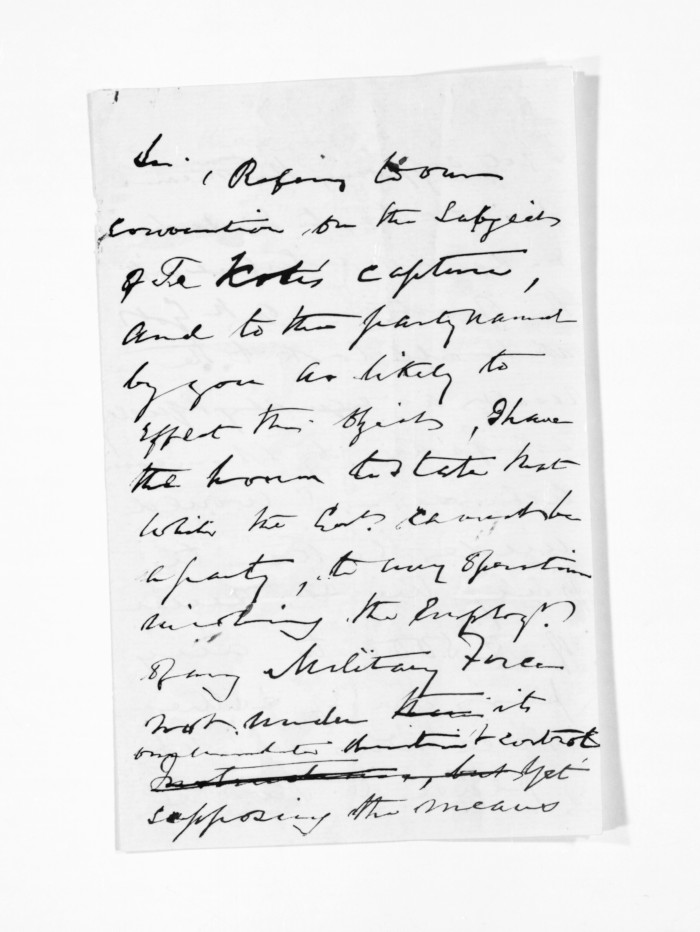 Sir,
Refering to our
conversation on the Subject
of Te Kooti's capture,
and to the party named
by you as likely to
effect this object, I have
the honor to state that
While the Govt. cannot be
a party, to any operation
involving the Employt.
of any Military Force
not under their its
own immediate direction & control
Instructions, but yet
supposing the means